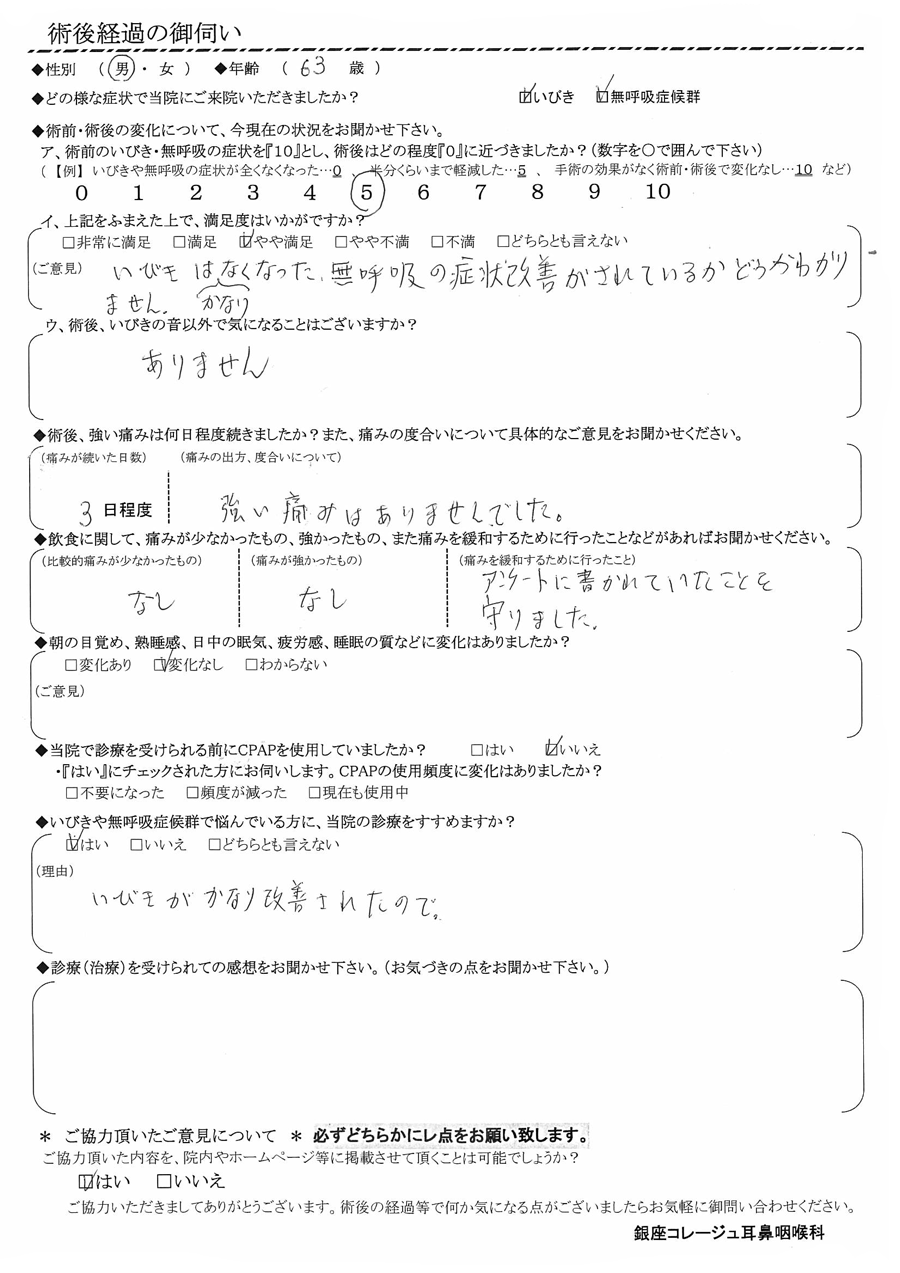 術後経過の御伺い
◆性別 （ 男 ・ 女 ） ◆年齢 （ 63 歳 ）
◆どの様な症状で当院にご来院いただきましたか？ ☑いびき ☑無呼吸症候群
◆術前・術後の変化について、今現在の状況をお聞かせ下さい。
ア、術前のいびき・無呼吸の症状を『10』とし、術後はどの程度『0』に近づきましたか？（数字を〇で囲んで下さい）
（【例】 いびきや無呼吸の症状が全くなくなった…0 、 半分くらいまで軽減した…5 、 手術の効果がなく術前・術後で変化なし…10 など）
0 1 2 3 4 5 6 7 8 9 10
イ、上記をふまえた上で、満足度はいかがですか？
□非常に満足 □満足 ☑やや満足 □やや不満 □不満 □どちらとも言えない
（ご意見） いびきはなくなった、無呼吸の症状改善がされているかどうかわかり
ません。 かなり
ウ、術後、いびきの音以外で気になることはございますか？
ありません
◆術後、強い痛みは何日程度続きましたか？また、痛みの度合いについて具体的なご意見をお聞かせください。
（痛みが続いた日数） （痛みの出方、度合いについて）
3 日程度 強い痛みはありませんでした。
◆飲食に関して、痛みが少なかったもの、強かったもの、また痛みを緩和するために行ったことなどがあればお聞かせください。
（比較的痛みが少なかったもの） （痛みが強かったもの） （痛みを緩和するために行ったこと）
なし なし アンケートに書かれていたことを
守りました。
◆朝の目覚め、熟睡感、日中の眠気、疲労感、睡眠の質などに変化はありましたか？
□変化あり ☑変化なし □わからない
（ご意見）
◆当院で診療を受けられる前にCPAPを使用していましたか？ □はい ☑いいえ
・『はい』にチェックされた方にお伺いします。CPAPの使用頻度に変化はありましたか？
□不要になった □頻度が減った □現在も使用中
◆いびきや無呼吸症候群で悩んでいる方に、当院の診療をすすめますか？
☑はい □いいえ □どちらとも言えない
（理由）
いびきがかなり改善されたので。
◆診療（治療）を受けられての感想をお聞かせ下さい。（お気づきの点をお聞かせ下さい。）
＊ ご協力頂いたご意見について ＊ 必ずどちらかにレ点をお願い致します。
ご協力頂いた内容を、院内やホームページ等に掲載させて頂くことは可能でしょうか？
☑はい □いいえ
ご協力いただきましてありがとうございます。術後の経過等で何か気になる点がございましたらお気軽に御問い合わせください。
銀座コレージュ耳鼻咽喉科